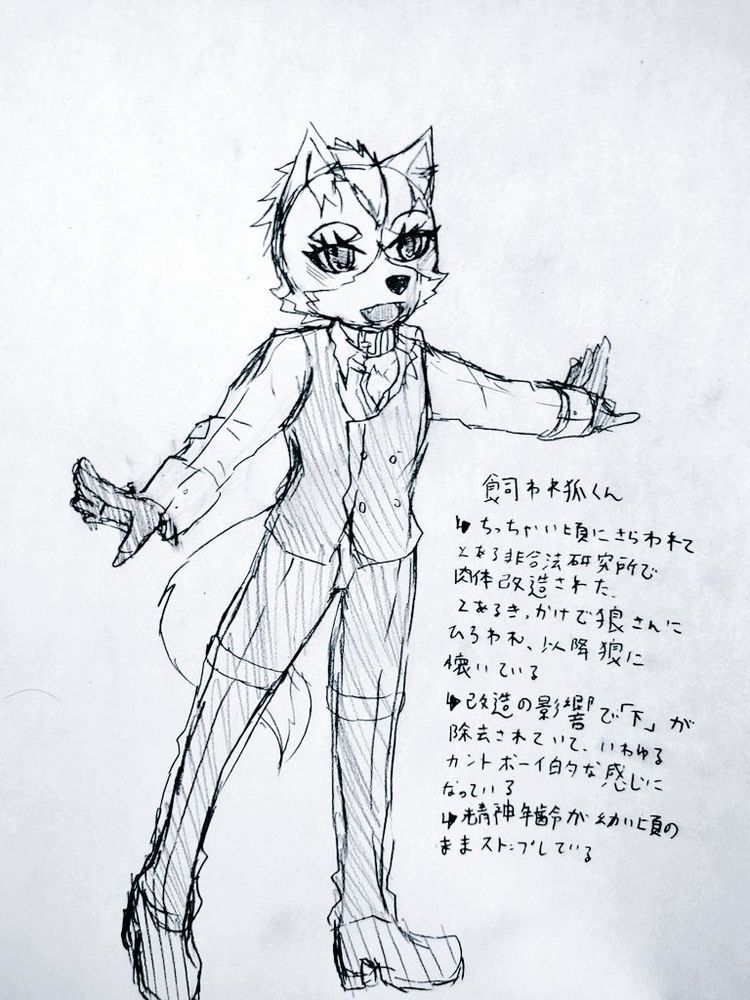 飼われ狐くん
↳ちっちゃい頃にさらわれて
とある非合法研究所で
肉体改造された。
とあるきっかけで狼さんに
ひろわれ、以降狼に
懐いている
↳改造の影響で「下」が
除去されていて、いわゆる
カントボーイ的な感じに
なっている
↳精神年齢が幼い頃の
ままストップしている